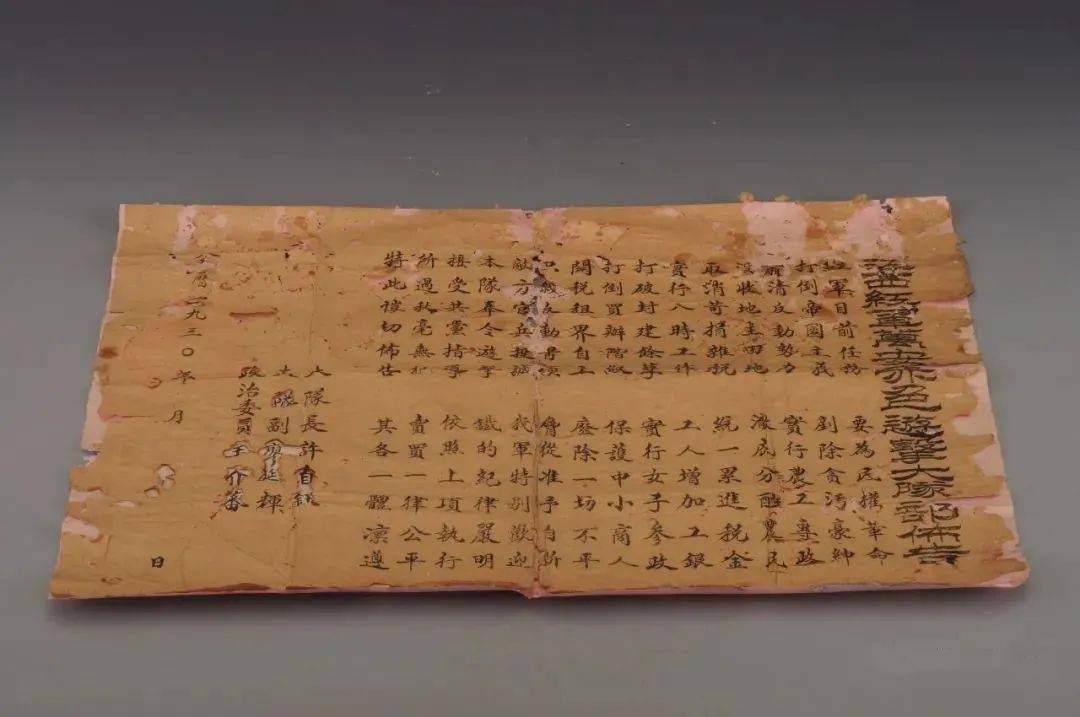 紅軍萬安赤色遊擊大隊部佈告
紅軍目前任務 要為民權革命
打倒帝國主義 剷除貪污豪紳
肅清反動勢力 實行農工專政
沒收地主田地 澈底分配農民
取消苛捐雜稅 統一累進稅金
實行八時工作 工人增加工銀
打破封建餘孽 實行女子參政
打倒買辦階級 保護中小商人
關稅租界自主 廢除一切不平
殺反動首領 脅從准予自新
敵方官兵投誠 我軍特別歡迎
本隊奉令遊擊 鐵的紀律嚴明
接受共黨指導 依照上項執行
所過秋毫無犯 賣買一律公平
特此懇切佈告 其各一體凜遵
大隊長許自
大隊副廖廷輝
政治委員王介
公曆一九三〇年 月 日